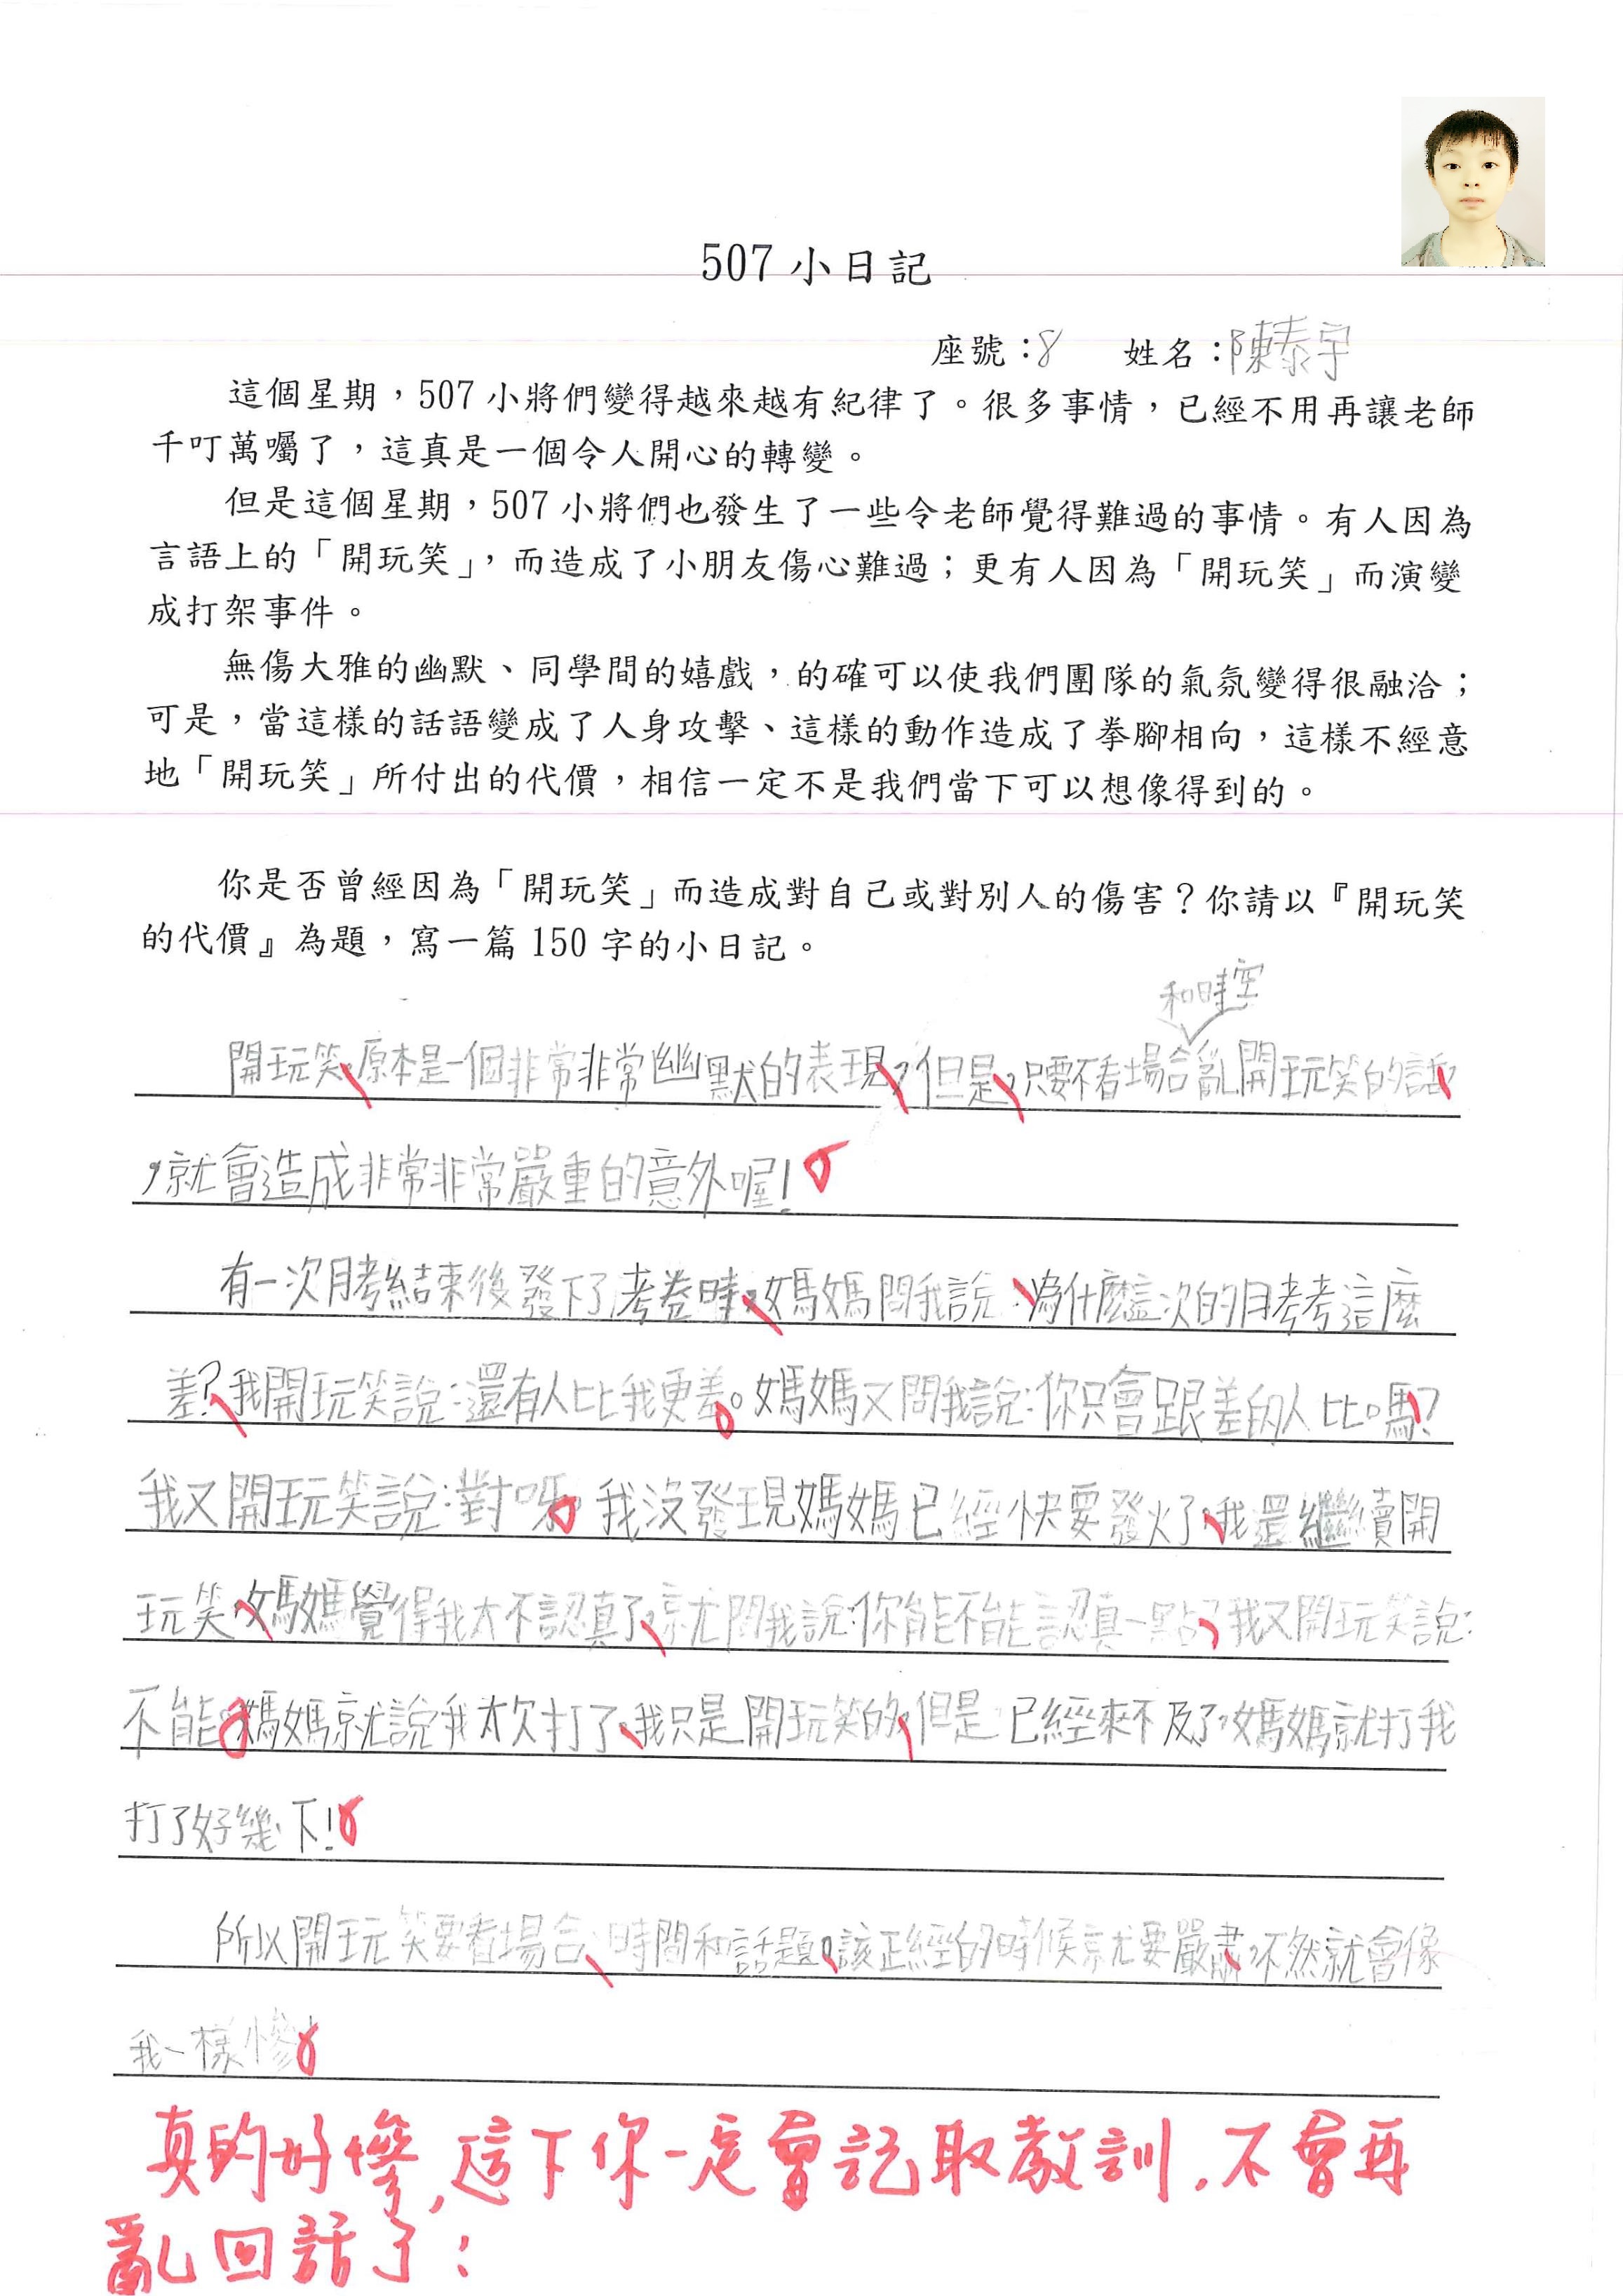 507 小日記
座號：8 姓名：陳泰宇
這個星期，507 小將們變得越來越有紀律了。很多事情，已經不用再讓老師
千叮萬囑了，這真是一個令人開心的轉變。
但是這個星期，507 小將們也發生了一些令老師覺得難過的事情。有人因為
言語上的「開玩笑」，而造成了小朋友傷心難過；更有人因為「開玩笑」而演變
成打架事件。
無傷大雅的幽默、同學間的嬉戲，的確可以使我們團隊的氣氛變得很融洽；
可是，當這樣的話語變成了人身攻擊、這樣的動作造成了拳腳相向，這樣不經意
地「開玩笑」所付出的代價，相信一定不是我們當下可以想像得到的。
你是否曾經因為「開玩笑」而造成對自己或對別人的傷害？你請以『開玩笑
的代價』為題，寫一篇 150 字的小日記。
和時空
開玩笑，原本是一個非常非常幽默的表現，但是，只要不看場合亂開玩笑的話
，就會造成非常非常嚴重的意外喔！
有一次月考結束後發下了考卷時，媽媽問我說：為什麼這次的月考考這麼
差？我開玩笑說：還有人比我更差。媽媽又問我說：你只會跟差的人比嗎？
我又開玩笑說：對呀。我沒發現媽媽已經快要發火了，我還繼續開
玩笑，媽媽覺得我太不認真了，就問我說：你能不能認真一點？我又開玩笑說：
不能。媽媽就說我太欠打了，我只是開玩笑的，但是已經來不及了，媽媽就打我
打了好幾下！
所以開玩笑要看場合、時間和話題，該正經的時候就要嚴肅，不然就會像
我一樣慘！
真的好慘，這下你一定會記取教訓，不會再
亂回話了！